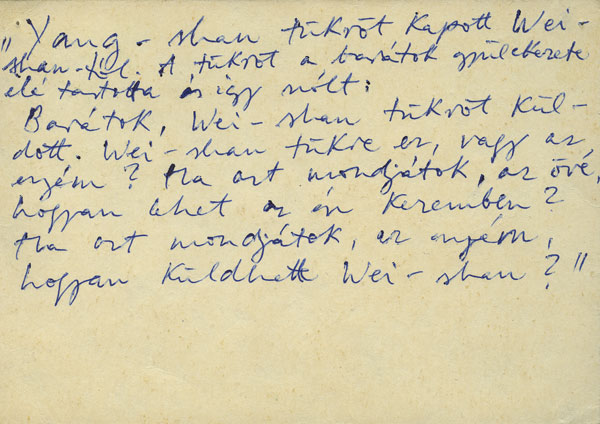 „Yang-shan tükröt kapott Wei-
shan-tól. A tükröt a barátok gyülekezete
elé tartotta és így szólt:
Barátok, Wei-shan tükröt kül-
dött. Wei-shan tükre ez, vagy az
enyém? Ha azt mondjátok, az övé,
hogyan lehet az én kezemben?
Ha azt mondjátok, az enyém,
hogyan küldhette Wei-shan?"